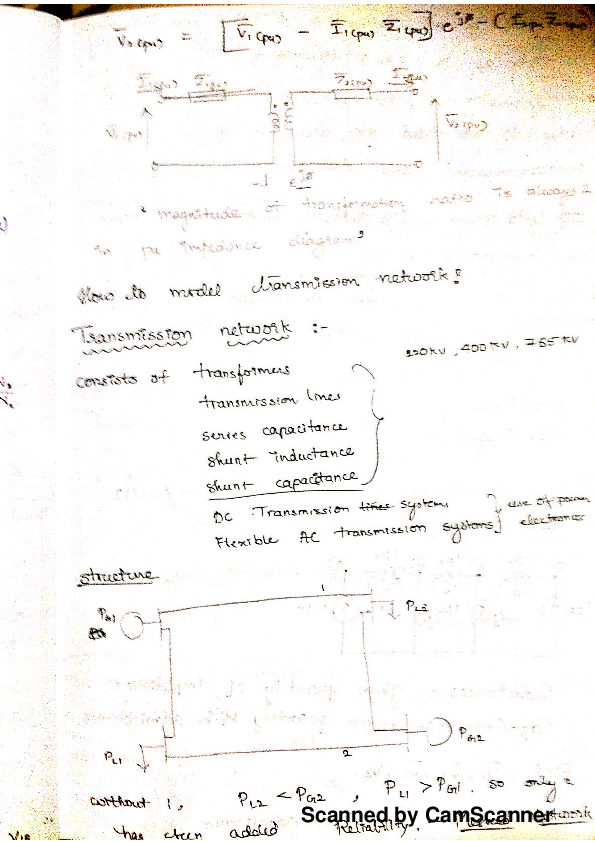 V̄₂(pu) = [V̄₁(pu) - Ī₁(pu) Z̄₁(pu)] e^jθ - (Ī₂(pu) Z̄₂(pu))
Ī₁(pu) Z̄₁(pu) Z₂(pu) Ī₂(pu)
V̄₁(pu) V̄₂(pu)
1 e^jθ
" magnitude of transformation ratio is always 1
in pu impedance diagram"
How to model transmission network?
Transmission network :-
220KV, 400KV, 765KV
consists of transformers
transmission lines
series capacitance
shunt inductance
shunt capacitance
DC Transmission lines systems
Flexible AC transmission systems
use of power
electronics
structure
1
PG1
PL2
PG2
PL1
2
without 1, PL2 < PG2 , PL1 > PG1. so only 2
has been added Reliability. network
Scanned by CamScanner